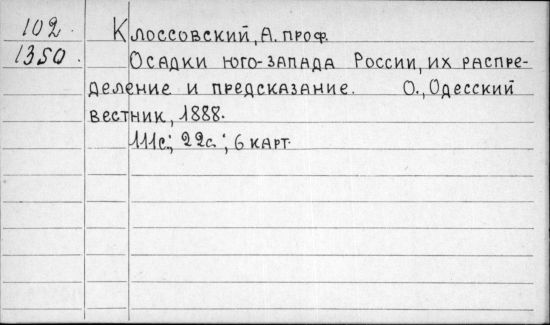 102. Клоссовский, А. проф.
1350. Осадки юго-запада России, их распре-
деление и предсказание. О., Одесский
вестник, 1888.
111с.; 22с.; 6 карт.